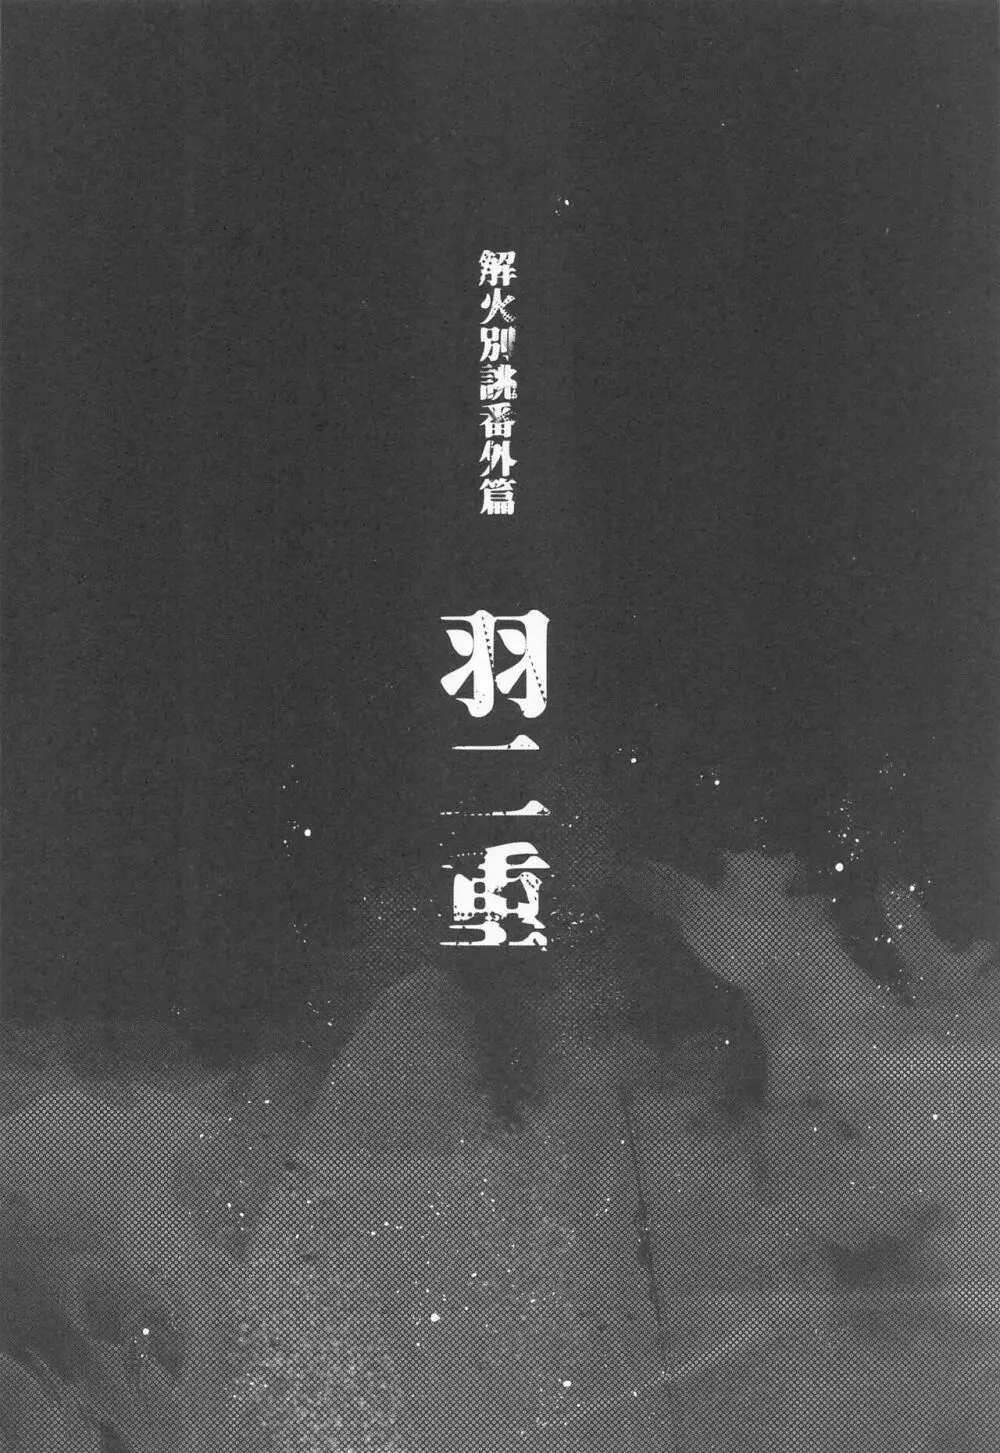 解火別誂番外篇
羽二重